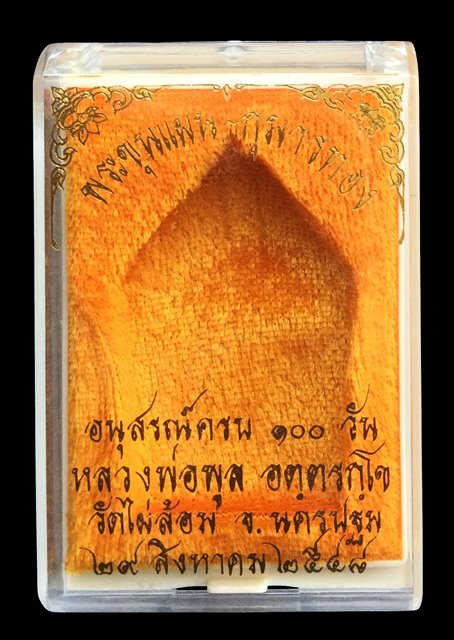 พระขุนแผน กุมารทอง
อนุสรณ์ครบ ๑๐๐ วัน
หลวงพ่อพูล อตฺตรกฺโข
วัดไผ่ล้อม จ.นครปฐม
๒๙ สิงหาคม ๒๕๔๘